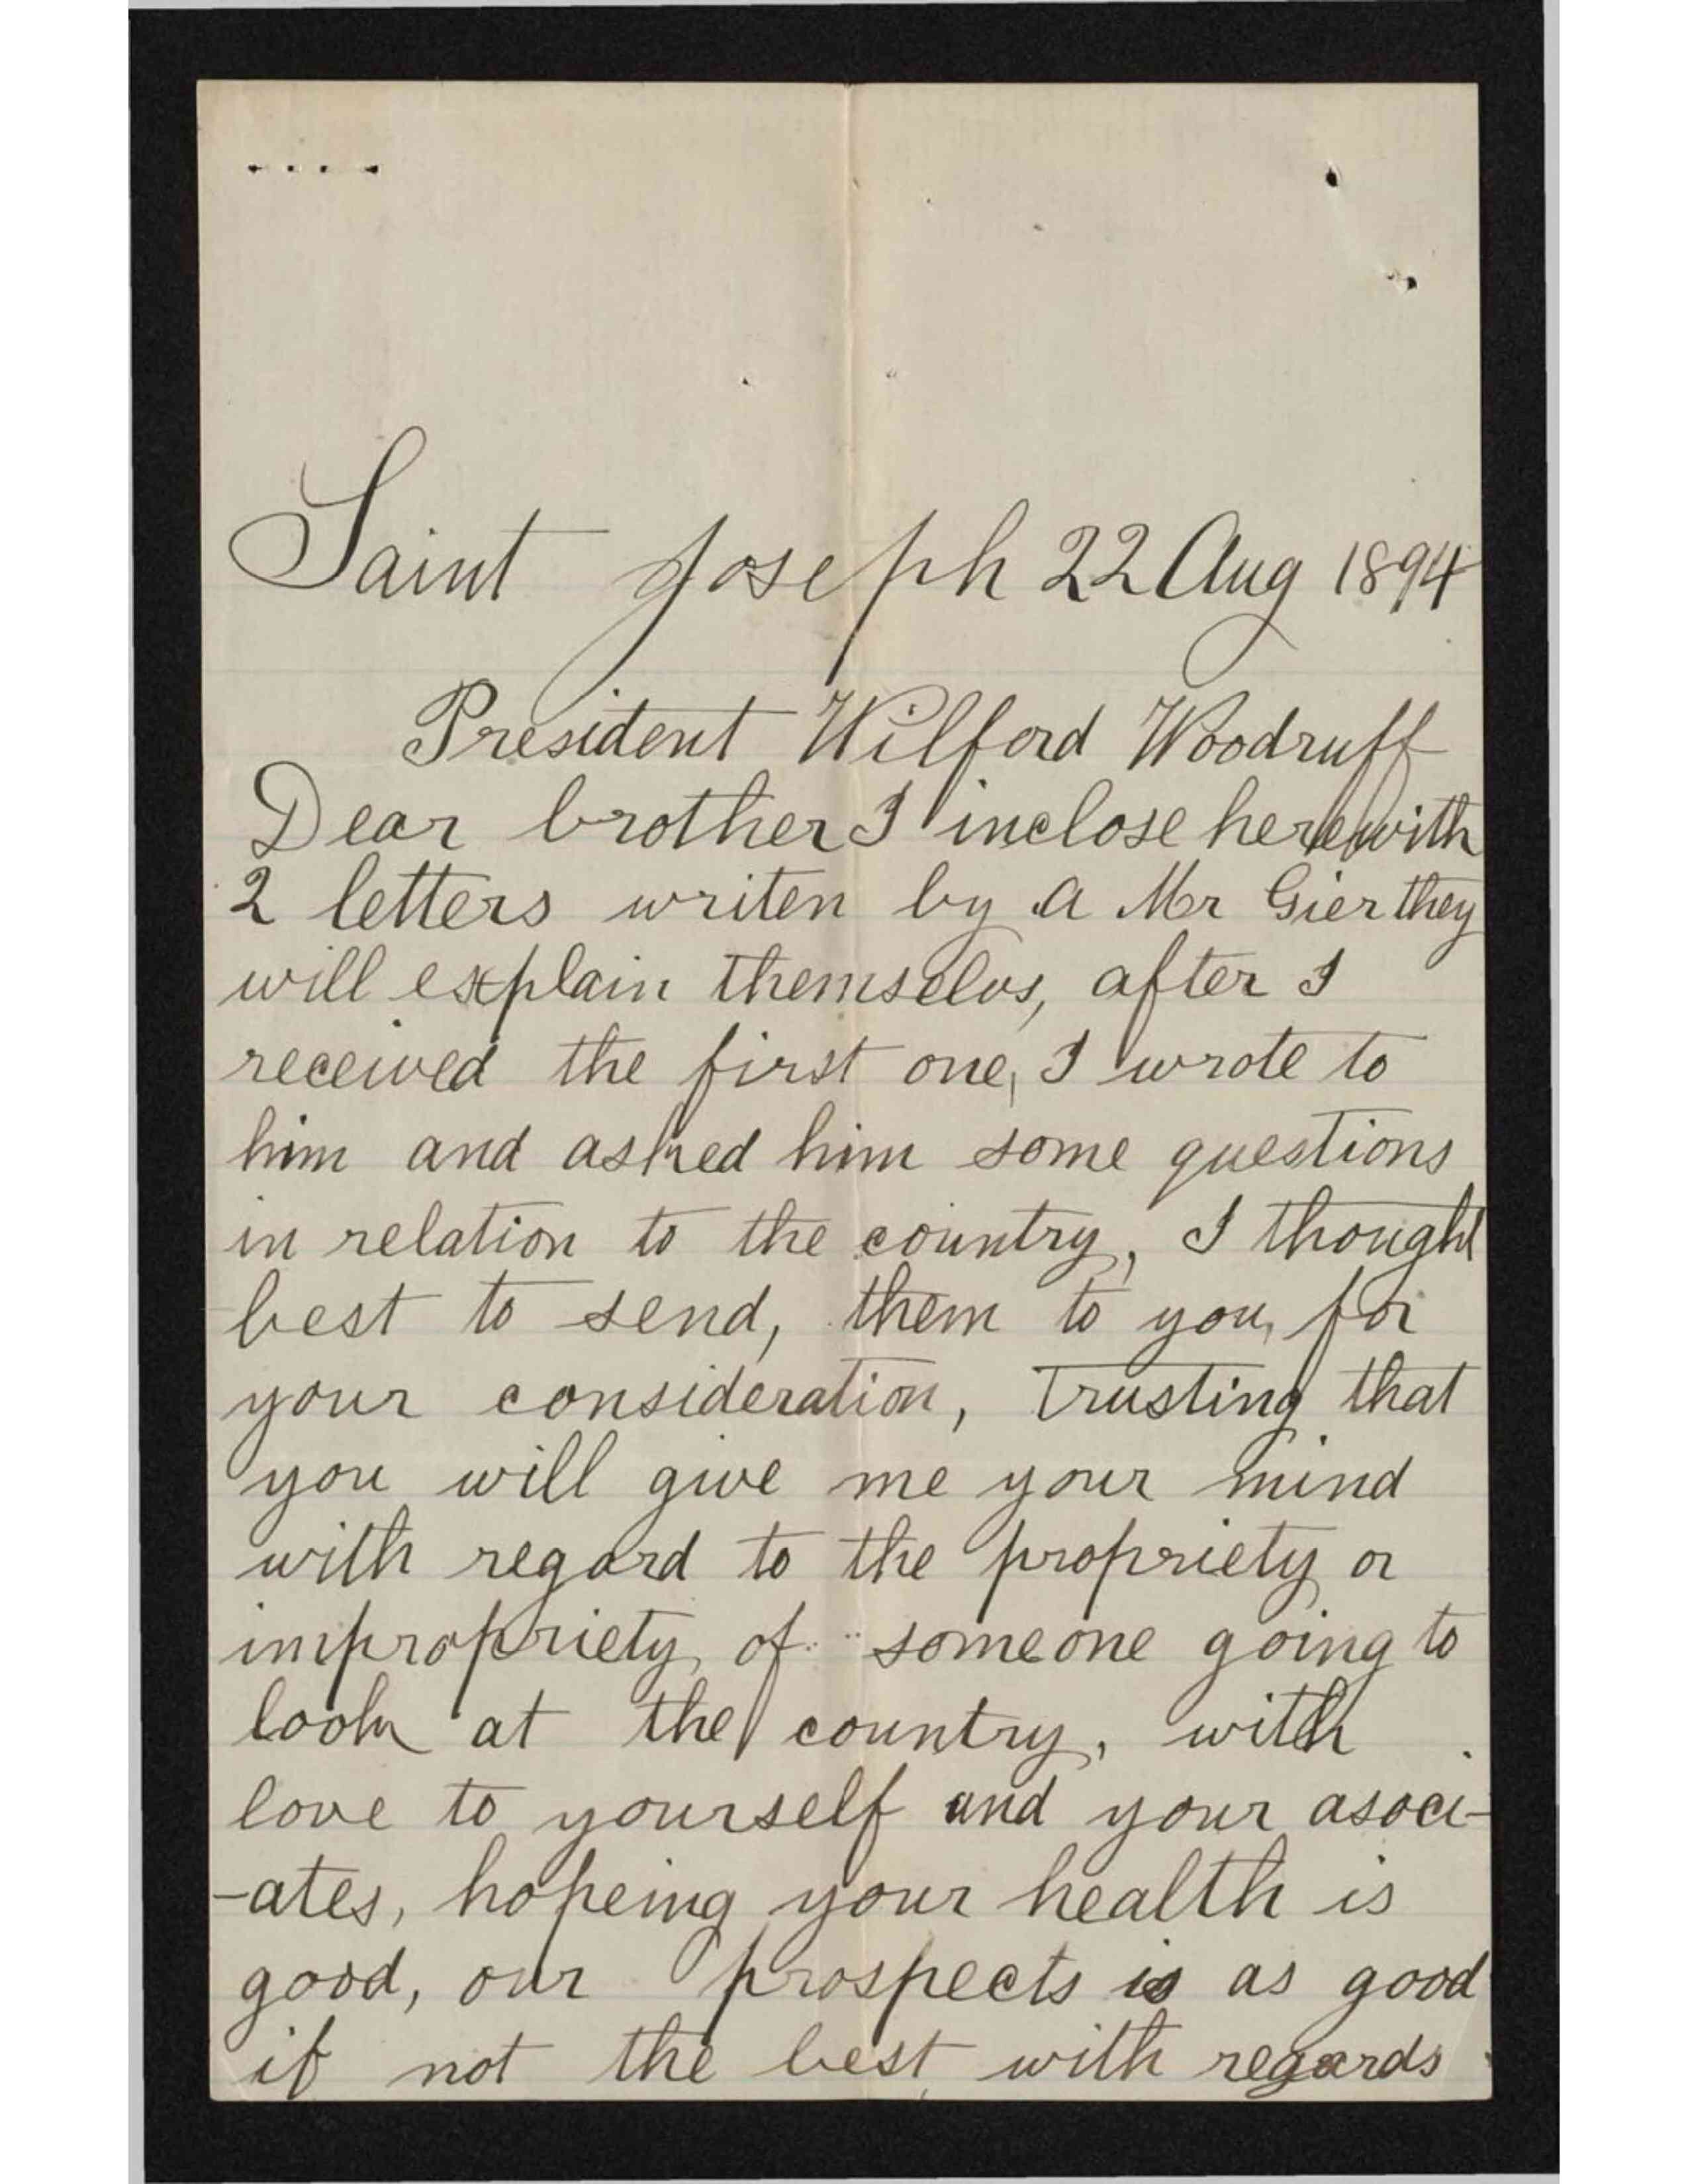 Saint Joseph 22 Aug 1894
President Wilford Woodruff
Dear brother I inclose herewith
2 letters writen by a Mr Gier they
will explain themselvs, after I
received the first one, I wrote to
him and asked him some questions
in relation to the country, I thought
best to send, them to you, for
your consideration, trusting that
you will give me your mind
with regard to the propriety or
impropriety of someone going to
look at the country, with
love to yourself and your asoci-
-ates, hopeing your health is
good, our prospects is as good
if not the best, with regards